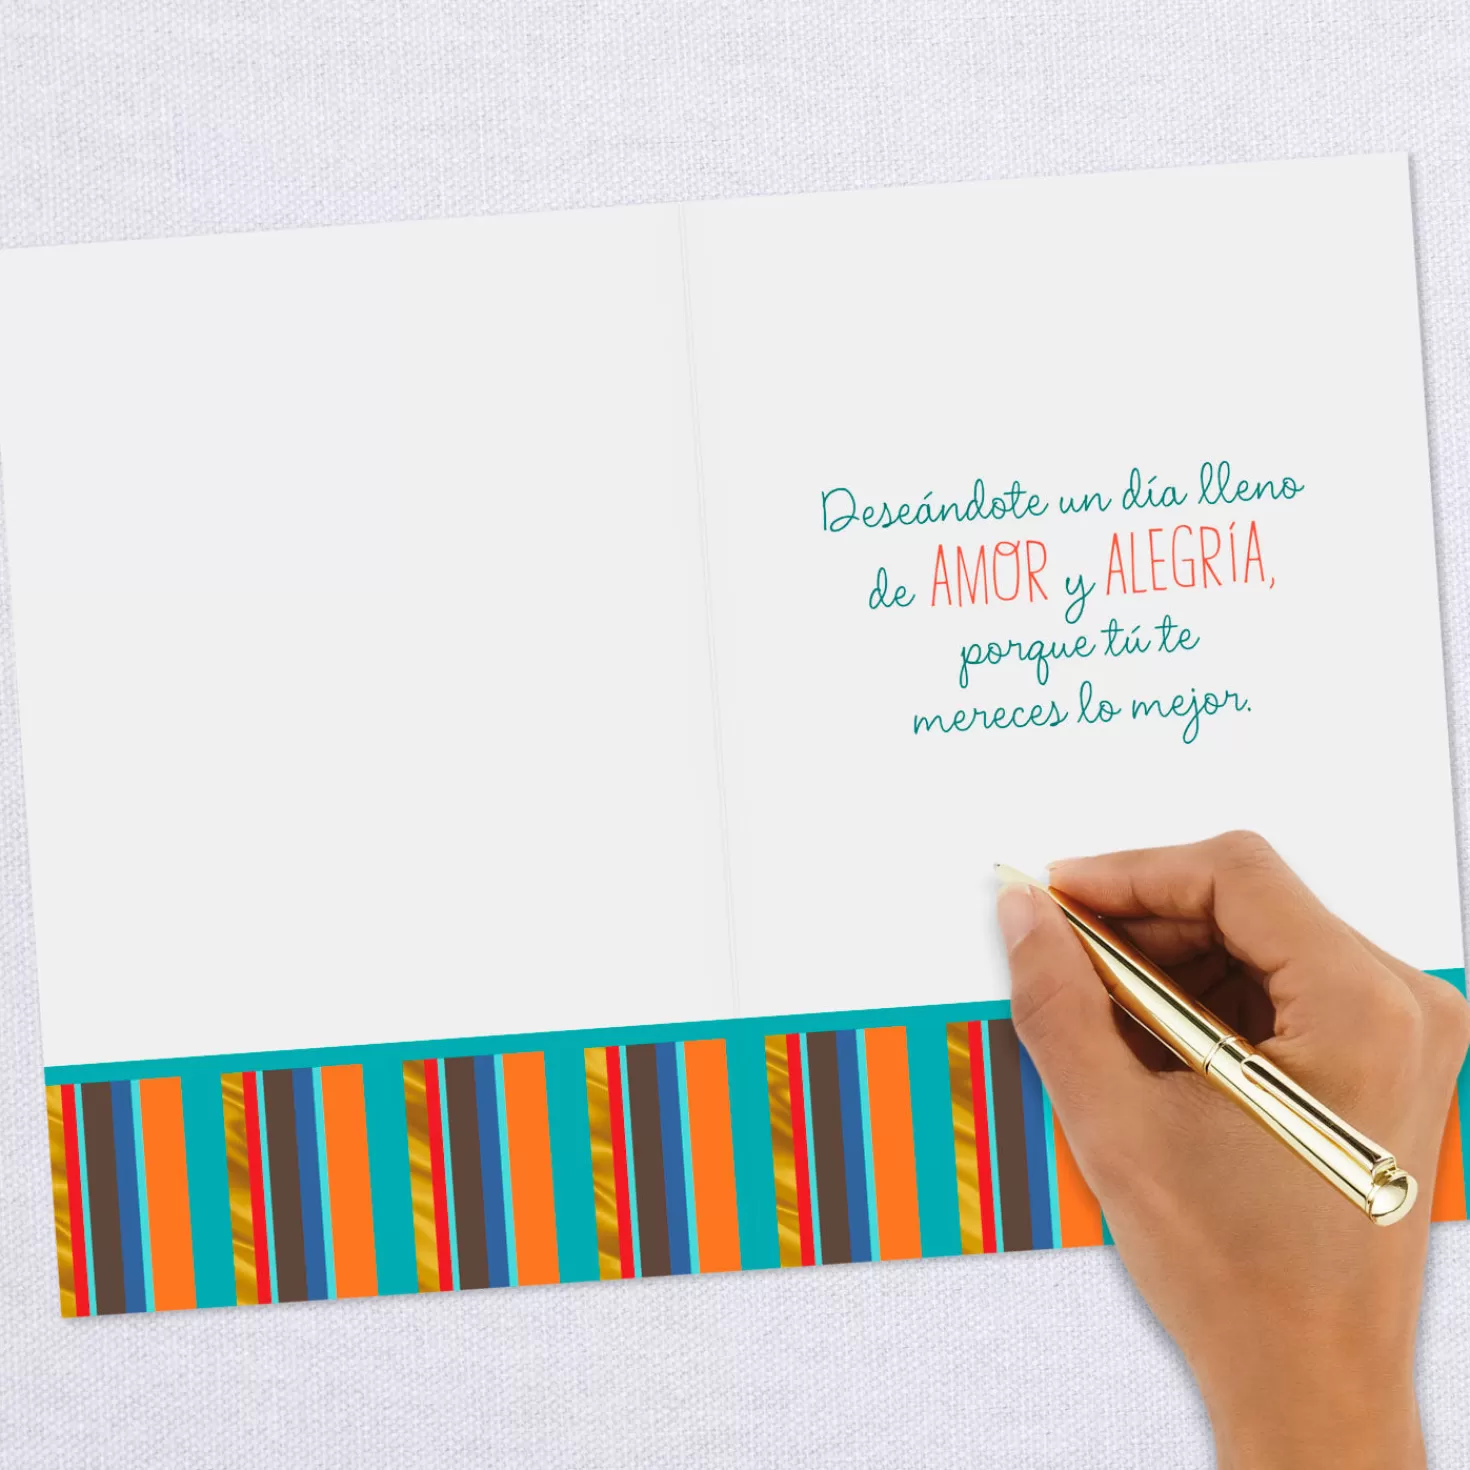 Deseándote un día lleno
de AMOR y ALEGRÍA,
porque tú te
mereces lo mejor.